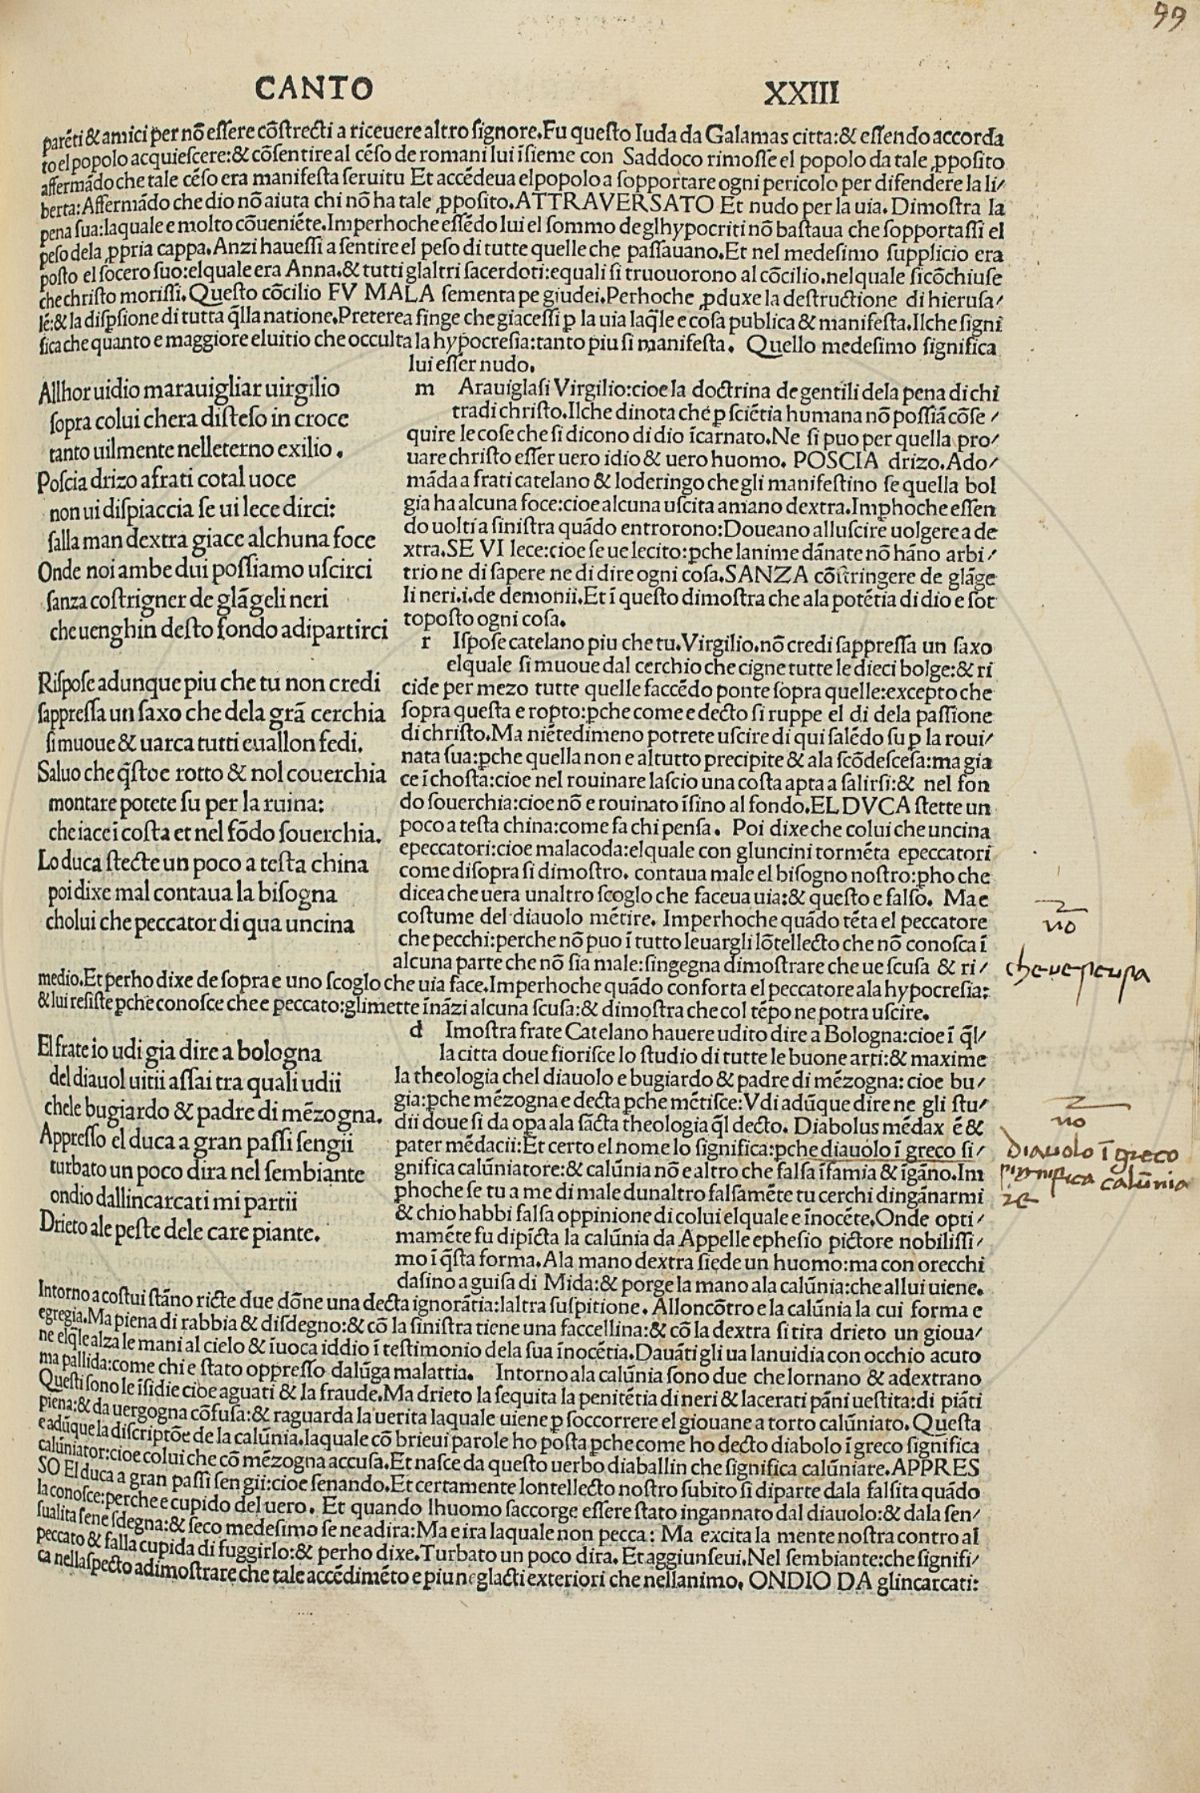 99
CANTO XXIII
parẽti & amici per nõ eſſere cõſtrecti a riceuere altro ſignore. Fu queſto Iuda da Galamas citta: & eſſendo accorda
to el popolo acquieſcere: & cõſentire al cẽſo de romani lui ĩſieme con Saddoco rimoſſe el popolo da tale ꝓpoſito
affermãdo che tale cẽſo era manifeſta ſeruitu Et accẽdeua el popolo a ſopportare ogni pericolo per difendere la li/
berta: Affermãdo che dio nõ aiuta chi nõ ha tale ꝓpoſito. ATTRAVERSATO Et nudo per la uia. Dimoſtra la
pena ſua: laquale e molto cõueniẽte. Imperhoche eſſẽdo lui el ſommo de glhypocriti nõ baſtaua che ſopportaſſi el
peſo dela ꝓpria cappa. Anzi haueſſi a ſentire el peſo di tutte quelle che paſſauano. Et nel medeſimo ſupplicio era
poſto el ſocero ſuo: elquale era Anna. & tutti glaltri ſacerdoti: equali ſi truouorono al cõcilio. nel quale ſi cõchiuſe
che chriſto moriſſi. Queſto cõcilio FV MALA ſementa pe giudei. Perhoche ꝓduxe la deſtructione di hieruſa/
lẽ: & la diſpſione di tutta q̃lla natione. Preterea finge che giaceſſi p la uia laq̃le e coſa publica & manifeſta. Ilche ſigni
fica che quanto e maggiore el uitio che occulta la hypocreſia: tanto piu ſi manifeſta. Quello medeſimo ſignifica
lui eſſer nudo.
Allhor uidio marauigliar uirgilio
ſopra colui chera diſteſo in croce
tanto uilmente nelleterno exilio.
Poſcia drizo a frati cotal uoce
non ui diſpiaccia ſe ui lece dirci:
ſalla man dextra giace alchuna foce
Onde noi ambe dui poſſiamo uſcirci
ſanza coſtrigner de glãgeli neri
che uenghin deſto fondo a dipartirci
Riſpoſe adunque piu che tu non credi
ſappreſſa un ſaxo che dela grã cerchia
ſi muoue & uarca tutti euallon fedi.
Saluo che q̃ſto e rotto & nol couerchia
montare potete ſu per la ruina:
che iace ĩ coſta et nel fõdo ſouerchia.
Lo duca ſtecte un poco a teſta china
poi dixe mal contaua la biſogna
cholui che peccator di qua uncina
m Arauiglaſi Virgilio: cioe la doctrina de gentili dela pena di chi
tradi chriſto. Ilche dinota che p ſciẽtia humana nõ poſſiã cõſe/
quire le coſe che ſi dicono di dio ĩcarnato. Ne ſi puo per quella pro/
uare chriſto eſſer uero idio & uero huomo. POSCIA drizo. Ado/
mãda a frati catelano & loderingo che gli manifeſtino ſe quella bol
gia ha alcuna foce: cioe alcuna uſcita a mano dextra. Imphoche eſſen
do uolti a ſiniſtra quãdo entrorono: Doueano alluſcire uolgere a de
xtra. SE VI lece: cioe ſe ue lecito: pche lanime dãnate nõ hãno arbi/
trio ne di ſapere ne di dire ogni coſa. SANZA cõſtringere de glãge
li neri. i. de demonii. Et ĩ queſto dimoſtra che ala potẽtia di dio e ſot
topoſto ogni coſa.
r Iſpoſe catelano piu che tu. Virgilio. nõ credi ſappreſſa un ſaxo
elquale ſi muoue dal cerchio che cigne tutte le dieci bolge: & ri
cide per mezo tutte quelle faccẽdo ponte ſopra quelle: excepto che
ſopra queſta e ropto: pche come e decto ſi ruppe el di dela paſſione
di chriſto. Ma niẽtedimeno potrete uſcire di qui ſalẽdo ſu p la roui/
nata ſua: pche quella non e altutto precipite & ala ſcõdeſceſa: ma gia
ce ĩ choſta: cioe nel rouinare laſcio una coſta apta a ſalirſi: & nel fon
do ſouerchia: cioe nõ e rouinato ĩſino al fondo. EL DVCA ſtette un
poco a teſta china: come fa chi penſa. Poi dixe che colui che uncina
epeccatori: cioe malacoda: elquale con gluncini tormẽta epeccatori
come diſopra ſi dimoſtro. contaua male el biſogno noſtro: pho che
dicea che uera unaltro ſcoglo che faceua uia: & queſto e falſo. Ma e
coſtume del diauolo mẽtire. Imperhoche quãdo tẽta el peccatore
che pecchi: perche nõ puo ĩ tutto leuargli lõtellecto che nõ conoſca ĩ
alcuna parte che nõ ſia male: ſingegna dimoſtrare che ue ſcuſa & ri/
medio. Et perho dixe de ſopra e uno ſcoglo che uia face. Imperhoche quãdo conforta el peccatore ala hypocreſia:
& lui reſiſte pche conoſce che e peccato: gli mette ĩnãzi alcuna ſcuſa: & dimoſtra che col tẽpo ne potra uſcire.
no
che ue scusa
El frate io udi gia dire a bologna
del diauol uitii aſſai tra quali udii
chele bugiardo & padre di mẽzogna.
Appreſſo el duca a gran paſſi ſengii
turbato un poco dira nel ſembiante
ondio dallincarcati mi partii
Drieto ale peſte dele care piante.
d Imoſtra frate Catelano hauere udito dire a Bologna: cioe ĩ q̃l/
la citta doue fioriſce lo ſtudio di tutte le buone arti: & maxime
la theologia chel diauolo e bugiardo & padre di mẽzogna: cioe bu/
gia: pche mẽzogna e decta pche mẽtiſce: Vdi adũque dire ne gli ſtu/
dii doue ſi da opa ala ſãcta theologia q̃l decto. Diabolus mẽdax ẽ &
pater mẽdacii: Et certo el nome lo ſignifica: pche diauolo ĩ greco ſi/
gnifica calũniatore: & calũnia nõ e altro che falſa ĩfamia & ĩgãno. Im
phoche ſe tu a me di male dunaltro falſamẽte tu cerchi dingãnarmi
& chio habbi falſa oppinione di colui elquale e ĩnocẽte. Onde opti/
mamẽte fu dipicta la calũnia da Appelle epheſio pictore nobiliſſi/
mo ĩ q̃ſta forma. Ala mano dextra ſiede un huomo: ma con orecchi
daſino a guiſa di Mida: & porge la mano ala calũnia: che allui uiene.
Intorno a coſtui ſtãno ricte due dõne una decta ignorãtia: laltra ſuſpitione. Alloncõtro e la calũnia la cui forma e
egregia. Ma piena di rabbia & diſdegno: & cõ la ſiniſtra tiene una faccellina: & cõ la dextra ſi tira drieto un gioua/
ne elq̃le alza le mani al cielo & ĩuoca iddio ĩ teſtimonio dela ſua ĩnocẽtia. Dauãti gli ua lanuidia con occhio acuto
ma pallida: come chi e ſtato oppreſſo dalũga malattia. Intorno ala calũnia ſono due che lornano & adextrano
Queſti ſono le ĩſidie cioe aguati & la fraude. Ma drieto la ſequita la penitẽtia di neri & lacerati pãni ueſtita: di piãti
piena: & da uergogna cõfuſa: & raguarda la uerita laquale uiene p ſoccorrere el giouane a torto calũniato. Queſta
e adũque la diſcriptõe de la calũnia. laquale cõ brieui parole ho poſta pche come ho decto diabolo ĩ greco ſignifica
calũniator: cioe colui che cõ mẽzogna accuſa. Et naſce da queſto uerbo diaballin che ſignifica calũniare. APPRES
SO El duca a gran paſſi ſengii: cioe ſenando. Et certamente lontellecto noſtro ſubito ſi diparte dala falſita quãdo
la conoſce: perche e cupido del uero. Et quando lhuomo ſaccorge eſſere ſtato ingannato dal diauolo: & dala ſen/
ſualita ſene ſdegna: & ſeco medeſimo ſe ne adira: Ma e ira laquale non pecca: Ma excita la mente noſtra contro al
peccato & falla cupida di fuggirlo: & perho dixe. Turbato un poco dira. Et aggiunſeui. Nel ſembiante: che ſignifi/
ca nellaſpecto a dimoſtrare che tale accẽdimẽto e piu ne glacti exteriori che nellanimo. ONDIO DA glincarcati:
no
Diauolo ĩ greco
significa calũnia
re